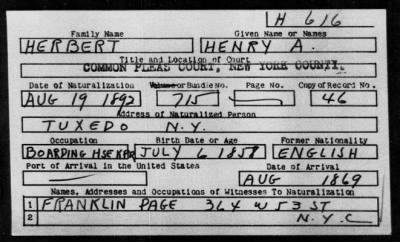 H 616
Family Name Given Name or Names
HERBERT HENRY A.
Title and Location of Court
COMMON PLEAS COURT, NEW YORK COUNTY.
Date of Naturalization Volume or Bundle No. Page No. Copy of Record No.
AUG 19 1892 715 46
Address of Naturalized Person
TUXEDO N.Y.
Occupation Birth Date or Age Former Nationality
BOARDING HSE KPR JULY 6 1851 ENGLISH
Port of Arrival in the United States Date of Arrival
AUG 1869
Names, Addresses and Occupations of Witnesses To Naturalization
1 FRANKLIN PAGE 364 W 53 ST
2 N.Y.C